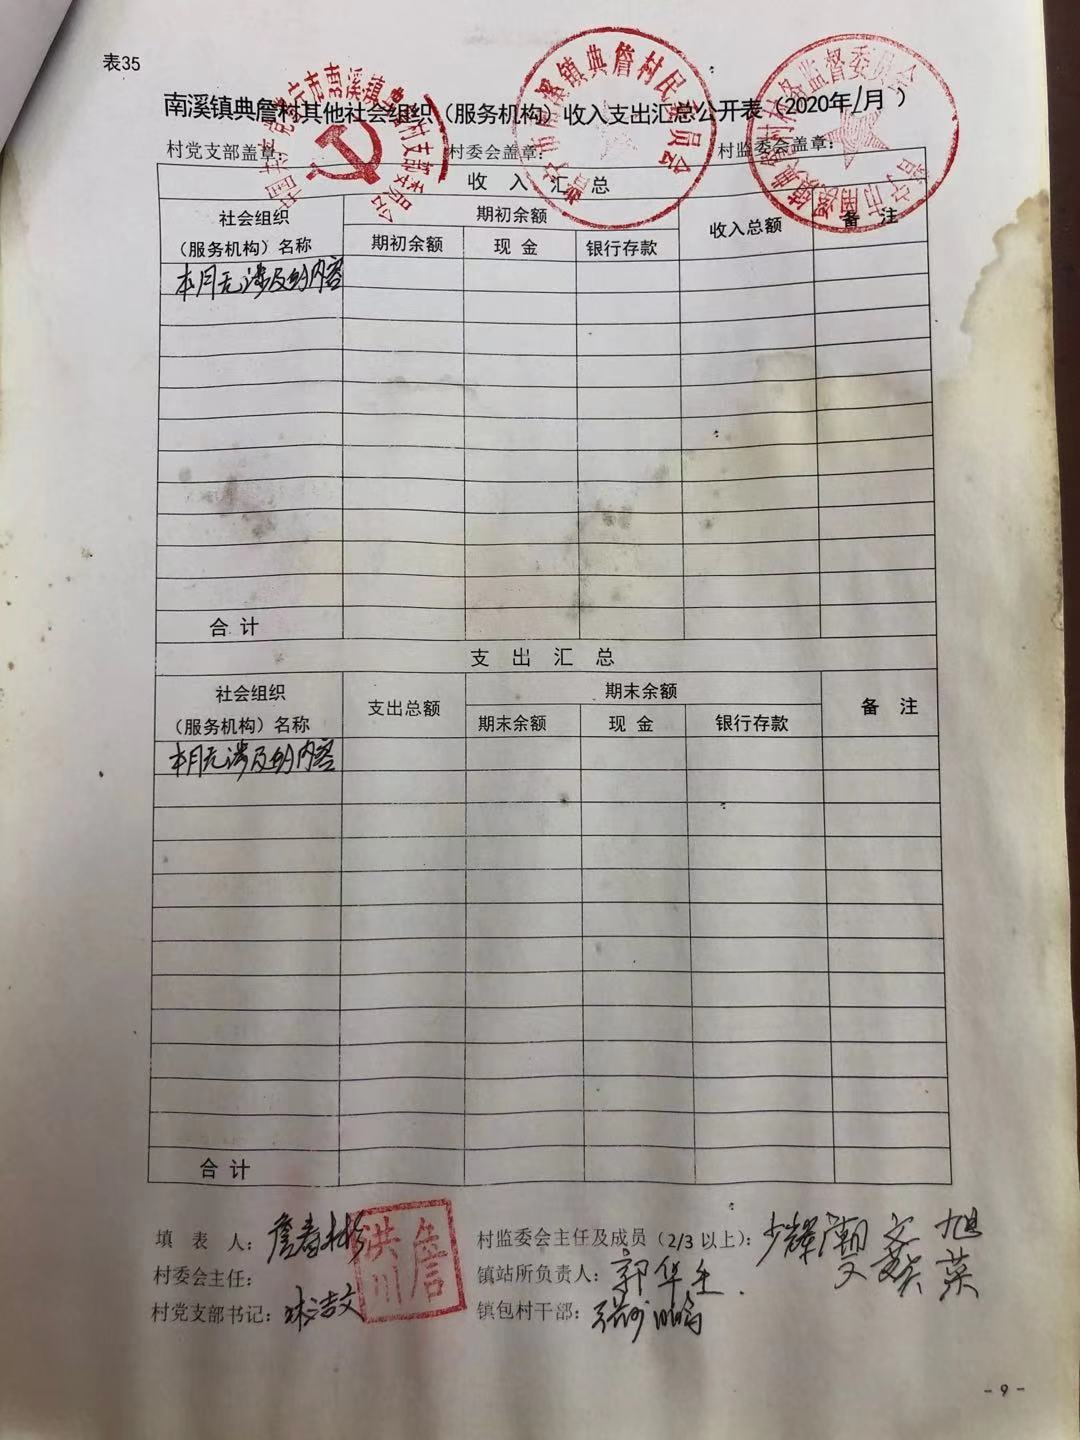 表35
南溪镇典詹村其他社会组织（服务机构）收入支出汇总公开表（2020年1月）
村党支部盖章： 村委会盖章： 村监委会盖章：
收 入 汇 总
社会组织（服务机构）名称 期初余额 收入总额 备 注
期初余额 现 金 银行存款
本月无涉及的内容
合 计
支 出 汇 总
社会组织（服务机构）名称 支出总额 期末余额 备 注
期末余额 现 金 银行存款
本月无涉及的内容
合 计
填 表 人：詹春彬 村监委会主任及成员（2/3 以上）：
村委会主任：詹洪川 镇站所负责人：
村党支部书记：林洁文 镇包村干部：
- 9 -